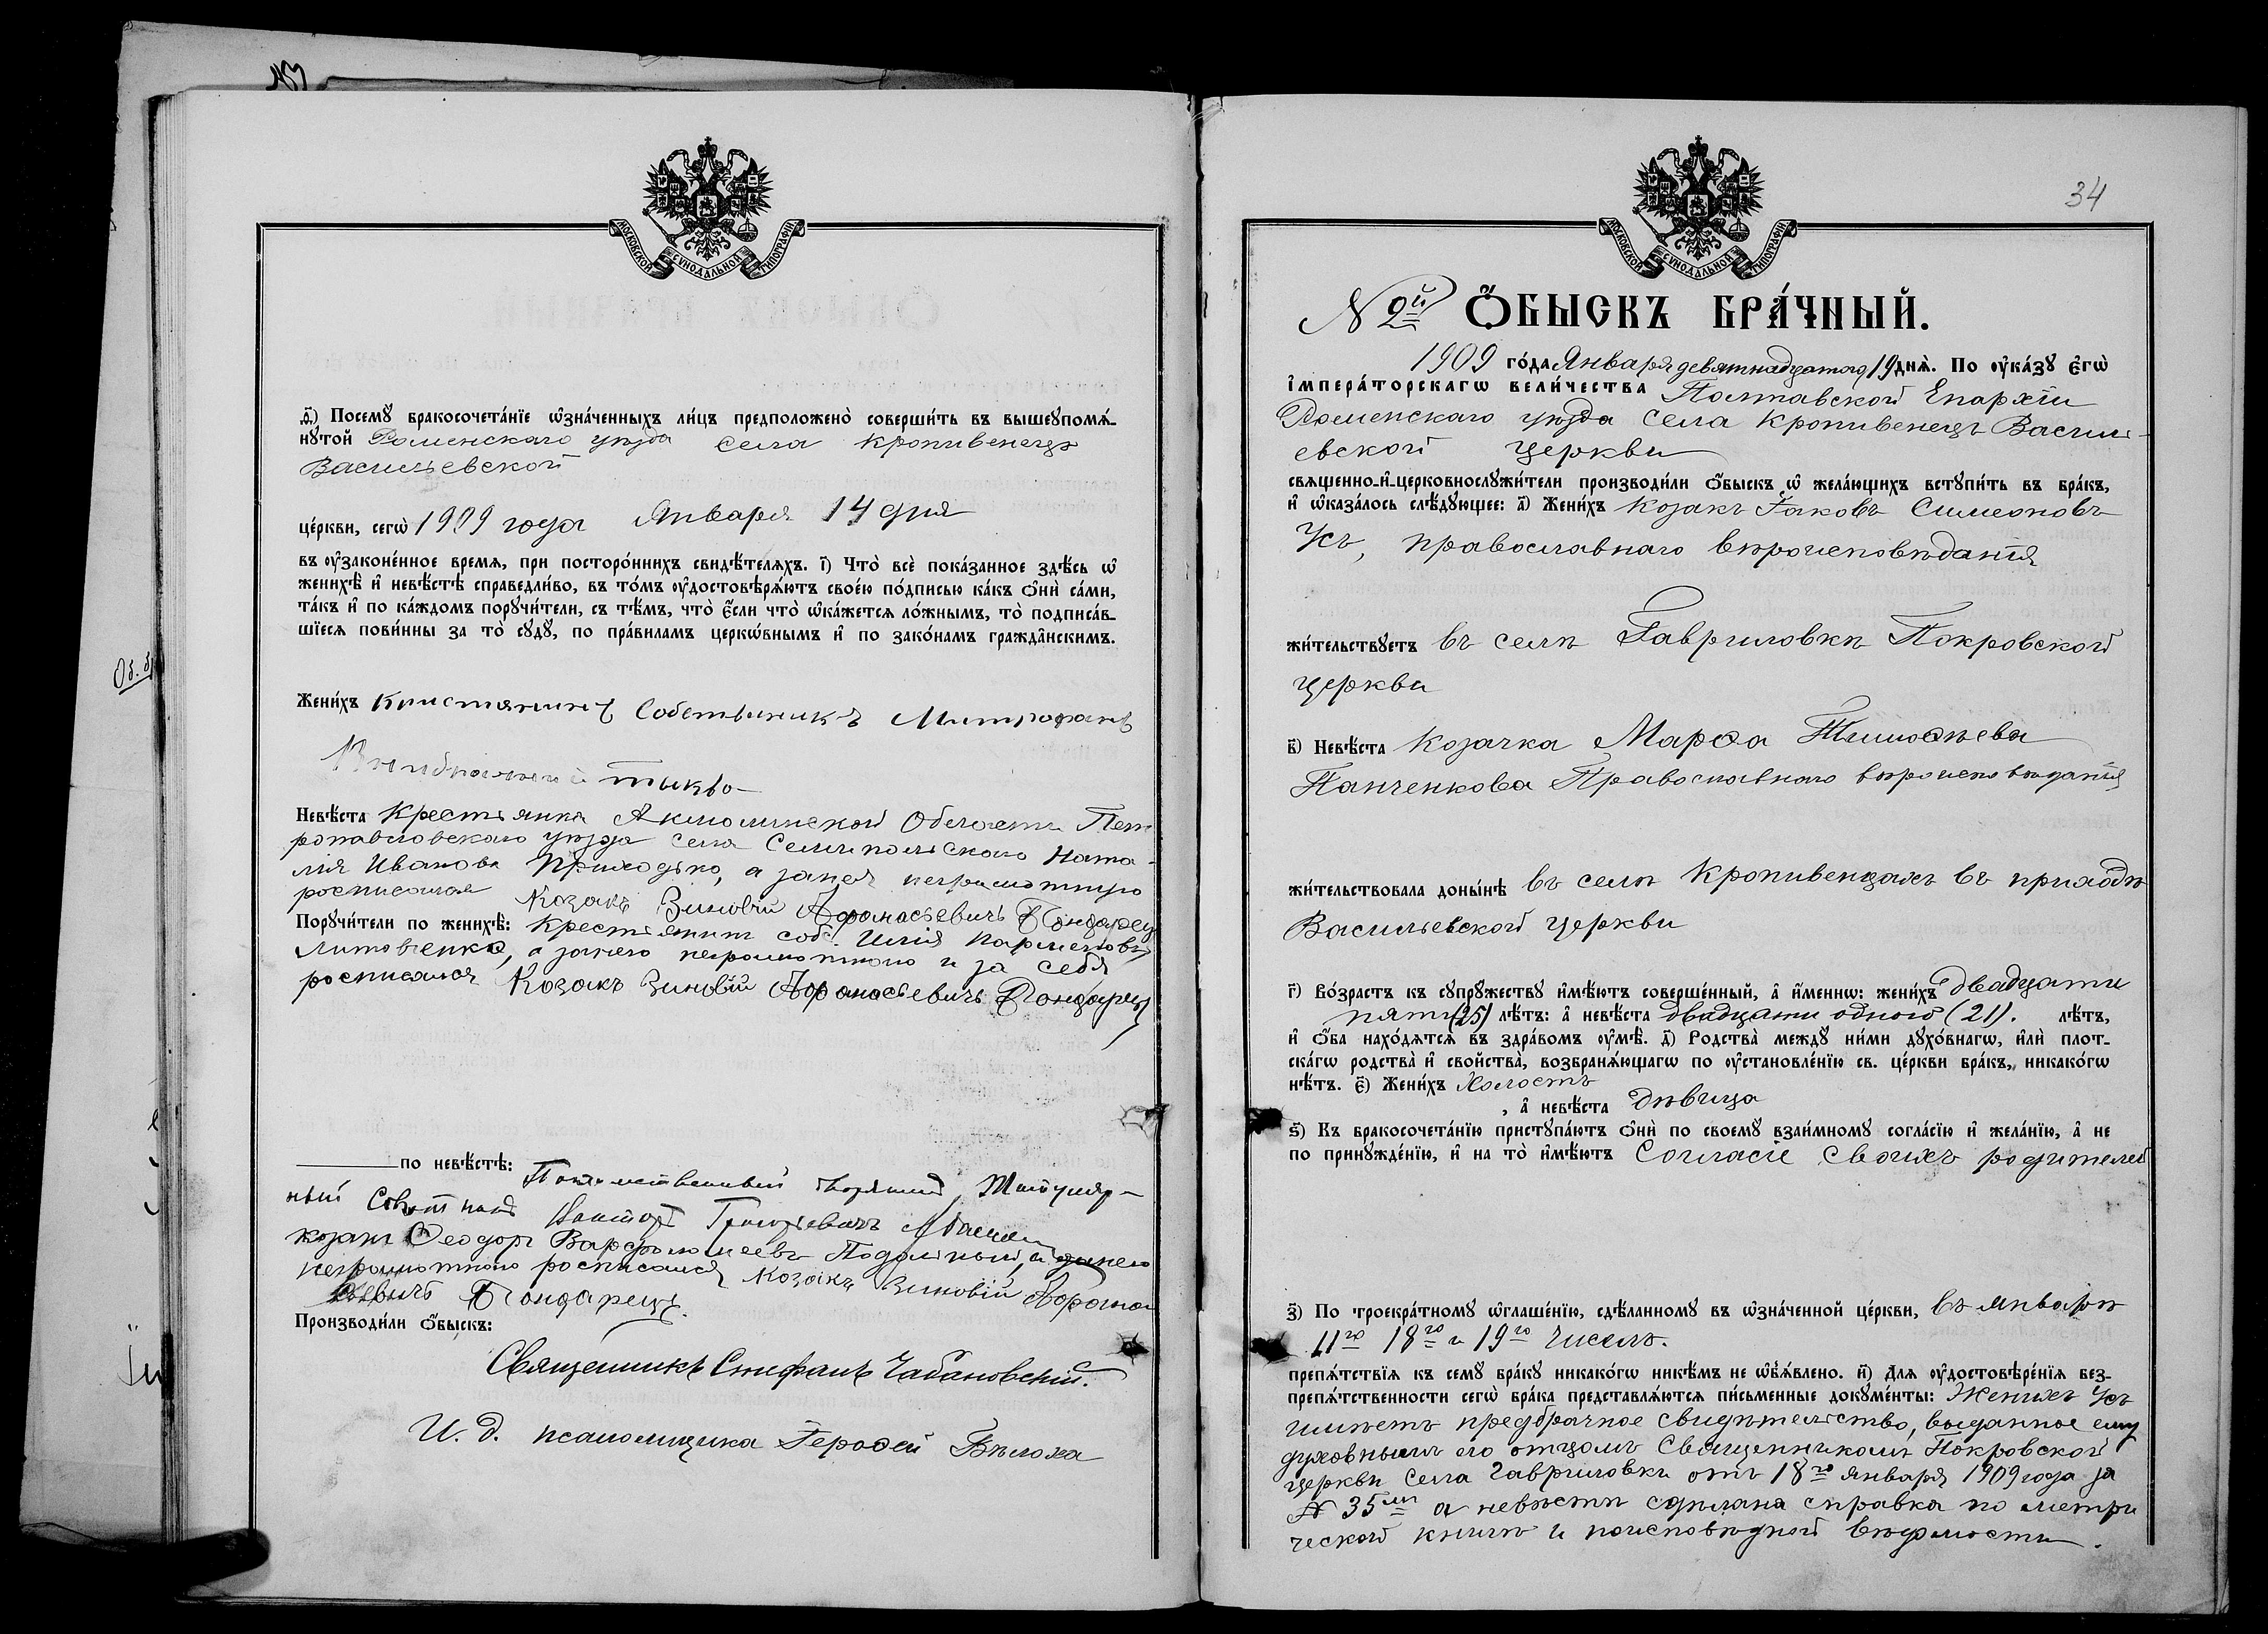 МОСКОВСКОЙ СѴНОДАЛЬНОЙ ТИПОГРАФІИ
Посемꙋ бракосочета́нїе ѡ҆зна́ченныхъ ли́цъ предположено̀ соверши́ть въ вышеꙋпомѧ́-
нꙋтой Роменскаго уѣзда села Кропивенецъ
Васильевской
це́ркви, сегѡ̀ 1909 года Января 14 дня
въ ᲂу҆зако́ненное время, при посторо́ннихъ свидѣ́телѧхъ. і҃) Что̀ всѐ пока́занное здѣ́сь ѡ҆
женихѣ̀ и҆ невѣ́стѣ справедли́во, въ то́мъ ᲂу҆достовѣрѧ́ютъ свое́ю по́дписью ка́къ ѻ҆нѝ са́ми,
та́къ и҆ по ка́ждомъ порꙋчи́тели, съ тѣ́мъ, что̀ є҆́сли что̀ ѡ҆ка́жетсѧ ло́жнымъ, то̀ подписа́в-
шїесѧ пови́нны за то̀ сꙋдꙋ̀, по пра́виламъ церкѡ́внымъ и҆ по зако́намъ гражда̑нскимъ.
Жени́хъ Кристянинъ Собственикъ Митрофанъ
тыкво
Невѣ́ста Крестьянка Акмолинской Области Пет
ропавловскаго уѣзда села Семипольскаго Ната-
лія Иванова Приходько, а занея неграмотную
росписался Козакъ Зиновій Афонасьевичъ Бондарец
Порꙋчи́тели по женихѣ̀: Крестьянин соб. Илія Парменовъ
Литовченко, а занего неграмотного и за себя
росписался Козакъ Зиновій Афонасьевичъ Бондарец
по невѣ́стѣ: Потомственный дворянинъ, Титуляр-
ный Совѣтникъ Викторъ Григорьевичъ
козакъ Ѳеодоръ Варфоломеевъ Подольный, а занего
неграмотного росписался Козакъ Зиновій Афонас
ьевичъ Бондарецъ.
Производи́ли ѻ҆́быскъ:
Священникъ Стефанъ Чабановскій.
И. д. псаломщика Іерофей Бѣлоха
34
МОСКОВСКОЙ СѴНОДАЛЬНОЙ ТИПОГРАФІИ
N 2й Ѻ҆́БЫСКЪ БРА́ЧНЫЙ.
1909 го́да Января девятнадцатого 19 днѧ̀. По ᲂу҆ка́зꙋ є҆гѡ̀
і҆мпера́торскагѡ вели́чества Полтавской Епархіи
Роменскаго уѣзда Села Кропивенецъ Васили-
евской Церкви
свѧщенно-и҆-церковнослꙋжи́тели производи́ли ѻ҆́быскъ ѡ҆ жела́ющихъ встꙋпи́ть въ бра́къ,
и҆ ѡ҆каза́лось слѣ́дꙋющее: а҃) Жени́хъ Козакъ Іаковъ Симеоновъ
Усъ, православнаго вѣроисповѣданія
жи́тельствꙋетъ въ селѣ Гавриловкѣ Покровской
церкви
в҃) Невѣ́ста Козачка Марѳа Тимоѳѣева
Панченкова Православнаго вѣроисповѣданія
жи́тельствовала доны́нѣ въ селѣ Кропивенцахъ въ приходѣ
Васильевской церкви
г҃) Во́зрастъ къ сꙋпрꙋ́жествꙋ и҆мѣ́ютъ соверше́нный, а҆ и҆́меннѡ: жени́хъ двадцати
пяти (25) лѣ́тъ: а҆ невѣ́ста двадцати одного (21). лѣ́тъ,
и҆ ѻ҆́ба нахо́дѧтсѧ въ здра́вомъ ᲂу҆мѣ̀. д҃) Родства̀ междꙋ̀ ни́ми дꙋхо́внагѡ, и҆лѝ плот-
ска́гѡ родства̀ и҆ свойства̀, возбранѧ́ющагѡ по ᲂу҆становле́нїю св. це́ркви бра́къ, никако́гѡ
нѣ́тъ. є҃) Жени́хъ Холостъ
, а҆ невѣ́ста дѣвица
ѕ҃) Къ бракосочета́нїю пристꙋпа́ютъ ѻ҆нѝ по своемꙋ̀ взаи́мномꙋ согла́сїю и҆ жела́нїю, а҆ не
по принꙋжде́нїю, и҆ на то̀ и҆мѣ́ютъ Согласіе своихъ родителей
з҃) По троекра́тномꙋ ѡ҆глаше́нїю, сдѣ́ланномꙋ въ ѡ҆зна́ченной це́ркви, въ январѣ
11го 18го и 19го чиселъ.
препѧ́тствїѧ къ семꙋ̀ бра́кꙋ никако́гѡ никѣ́мъ не ѡ҆б̾ѧ́влено. и҃) Для ᲂу҆достовѣре́нїѧ без-
препѧ́тственности сегѡ̀ бра́ка представлѧ́ютсѧ пи́сьменные докꙋме́нты: Женихъ Усъ
имѣетъ предбрачное свидѣтельство, выданное ему
духовнымъ его отцомъ Священникомъ Покровской
церкви села Гавриловки отъ 18го января 1909 года за
№ 35мъ а невѣсти сдѣлана справка по метри
ческой книгѣ и поисповѣдной вѣдомости.